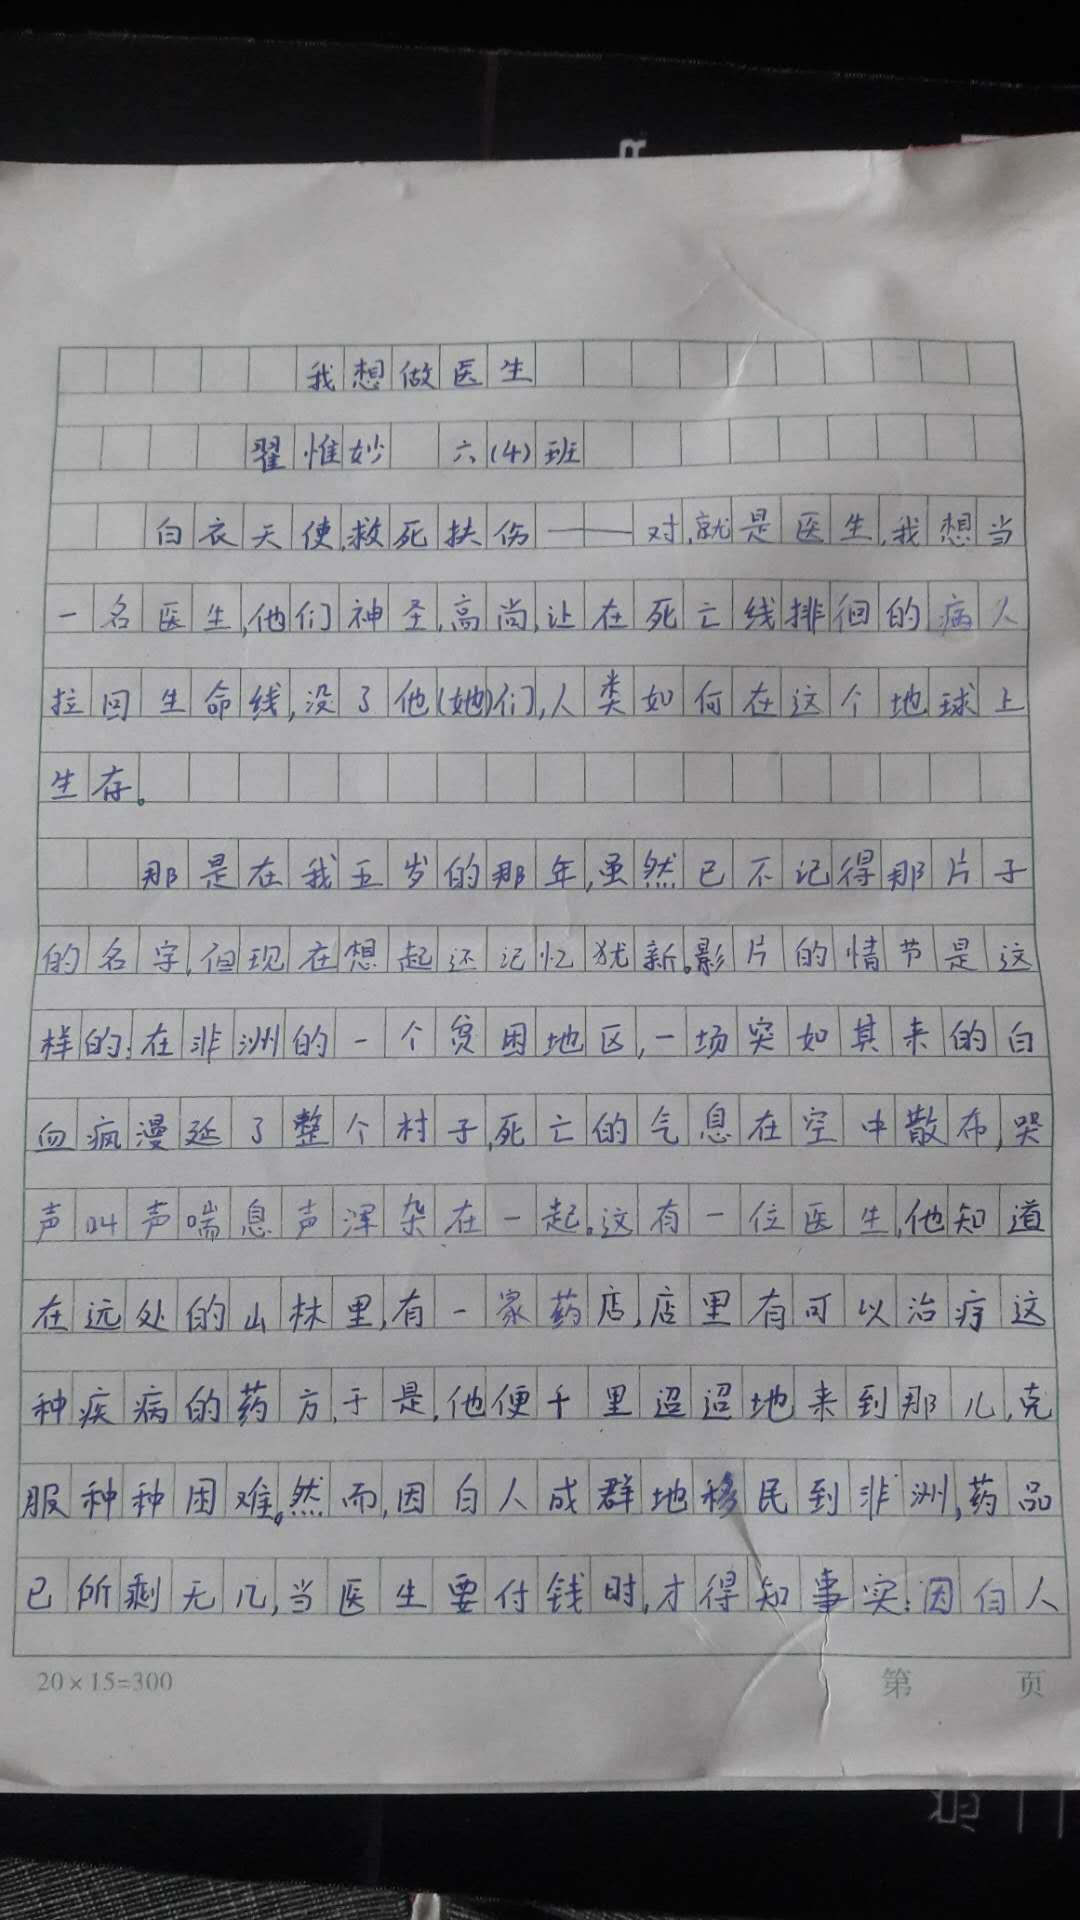 我想做医生
翟惟妙 六(4)班
白衣天使,救死扶伤——对,就是医生,我想当
一名医生,他们神圣,高尚,让在死亡线排徊的病人
拉回生命线,没了他(她)们,人类如何在这个地球上
生存。
那是在我五岁的那年,虽然已不记得那片子
的名字,但现在想起还记忆犹新。影片的情节是这
样的:在非洲的一个贫困地区,一场突如其来的白
血疯漫延了整个村子,死亡的气息在空中散布,哭
声叫声喘息声浑杂在一起。这有一位医生,他知道
在远处的山林里,有一家药店,店里有可以治疗这
种疾病的药方,于是,他便千里迢迢地来到那儿,克
服种种困难。然而,因白人成群地移民到非洲,药品
已所剩无几,当医生要付钱时,才得知事实:因白人
20×15=300
第 页